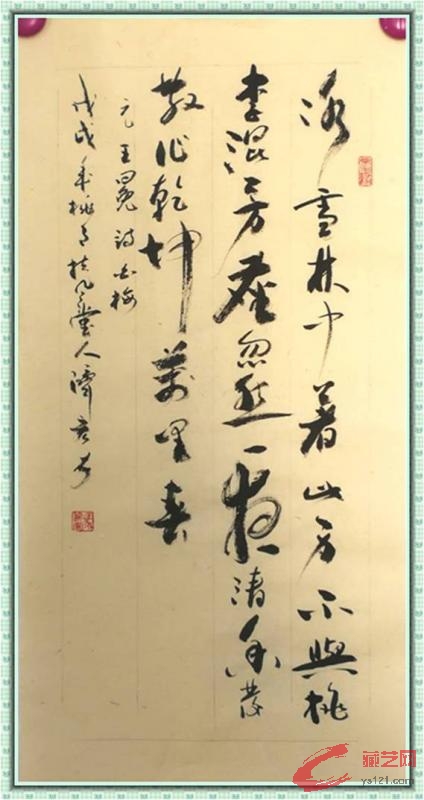 冰雪林中著此身不與桃
李混芳塵忽然一夜清香發
散作乾坤萬里春
元王冕詩白梅
戊戌年桃月扶風堂人濟
藏艺网
ys121.com